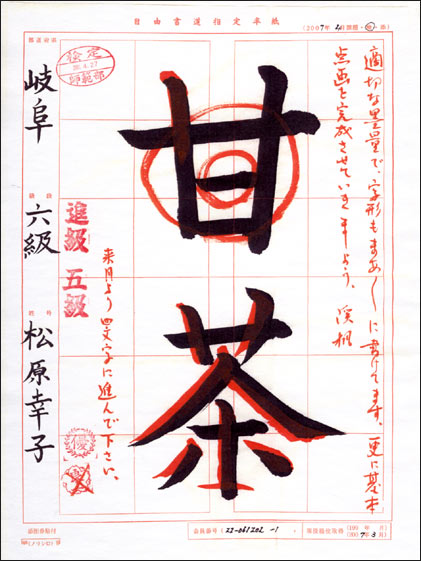 自由書道指定半紙
(2007年
適切な墨量で、字形もまあ〱に書けてます。更に基本
点画を完成させていきましょう。 溪桐
甘茶
来月より四文字に進んで下さい。
都道府県
岐阜
六級
松原幸子
検定
師範部
進級 五級
優
会員番号 (22-061202 -1
(ノリシロ)